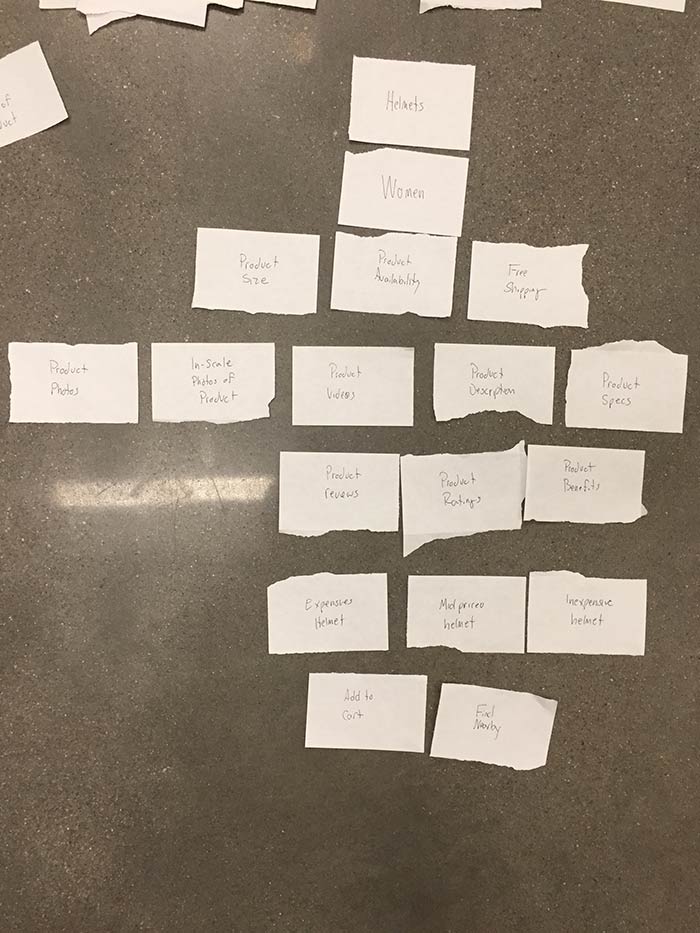 of
uct
Helmets
Women
Product
Size
Product
Availability
Free
Shipping
Product
Photos
In-Scale
Photos of
Product
Product
Videos
Product
Description
Product
Specs
Product
reviews
Product
Ratings
Product
Benefits
Expensives
Helmet
Mid priced
helmet
Inexpensive
helmet
Add to
Cart
Find
Nearby